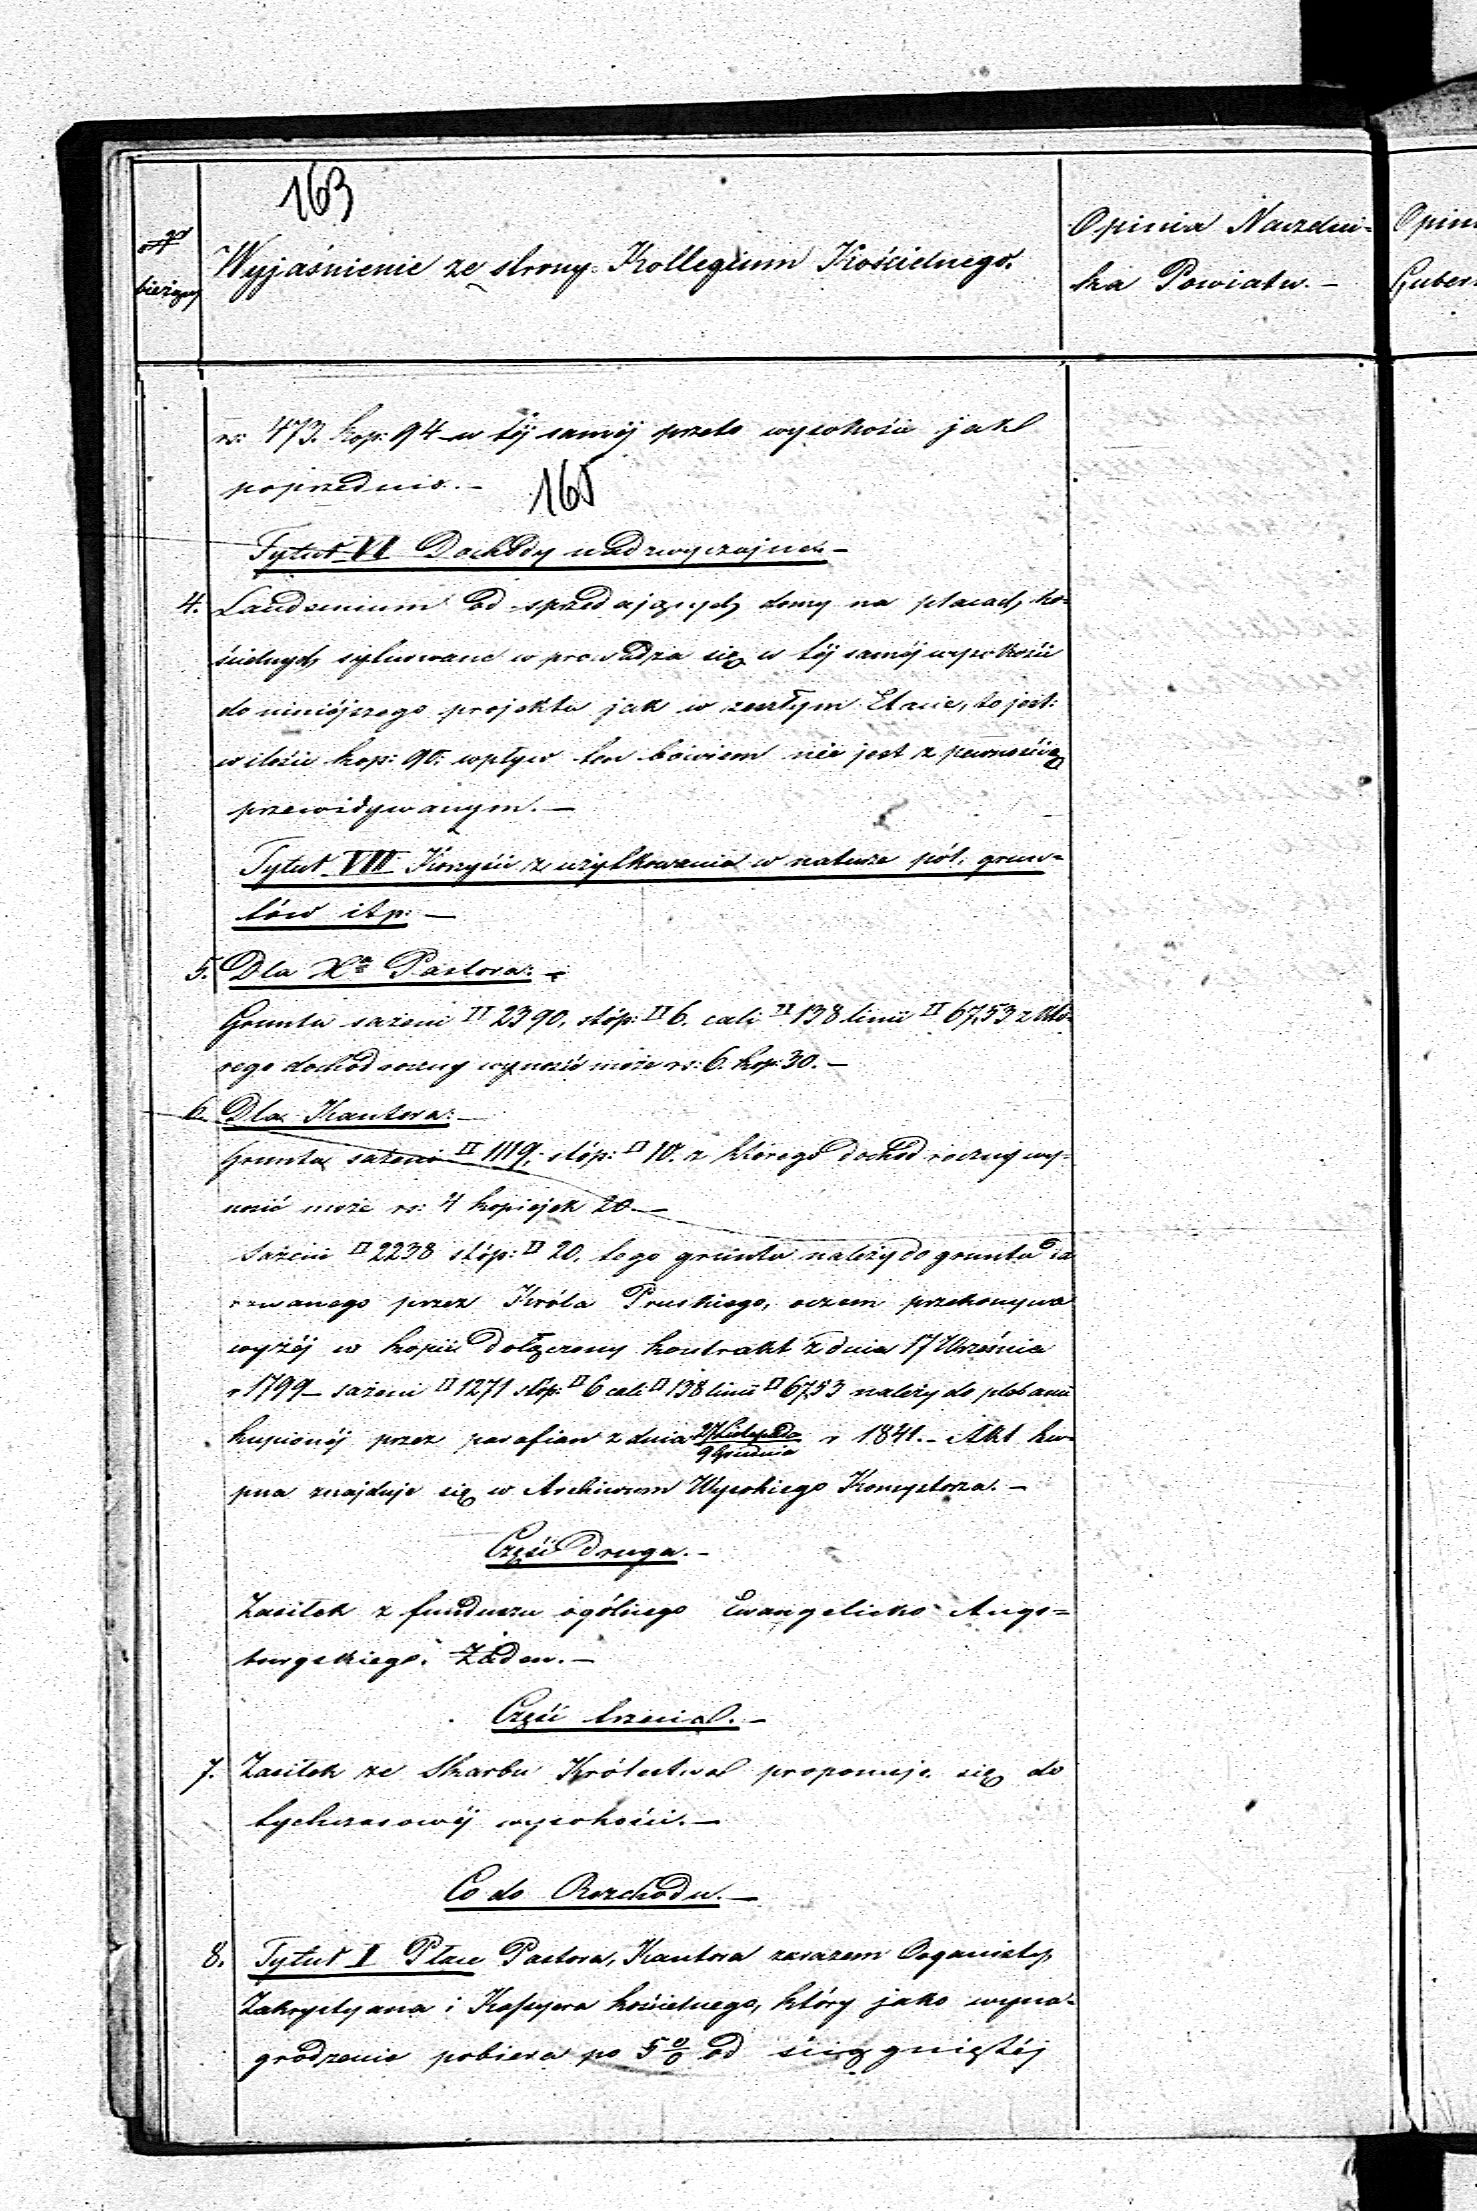 163
№
bieżący
Wyjaśnienie ze strony Kollegium Kościelnego.
Opinia Naczelni-
ka Powiatu. –
Opin
Guber
rs: 473. kop: 94 w téj saméj przeto wysokości jak
poprzednio. –
165
Tytuł VI Dochody nadzwyczajne. –
4. Laudemium od sprzedających domy na placach ko-
ścielnych sytuowane wprowadza się w téj saméj wysokości
do niniéjszego projektu jak w zeszłym Etacie, to jest:
w ilości kop: 90. wpływ ten bowiem nie jest z pewnością
przewidywanym. –
Tytuł VII Korzyści z użytkowania w naturze pól, grun-
tów itp: –
5. Dla Xa Pastora: –
Gruntu sażeni □ 2390, stóp: □ 6. cali □ 138 linii □ 67,53 z któ-
rego dochód roczny wynosić może rs: 6. kop: 30. –
6. Dla Kantora: –
Gruntu sażeni □ 1119, stóp: □ 10. z którego dochód roczny wy-
nosić może rs: 4 kopiejek 20 –
Sażeni □ 2238 stóp: □ 20. tego gruntu należy do gruntu da
rowanego przez Króla Pruskiego, oczem przekonywa
wyżéj w kopii dołączony kontrakt z dnia 17 Września
r 1799 – sażeni □ 1271 stóp: □ 6 cali □ 138 linii □ 67,53 należy do plebanii
kupionéj przez parafian z dnia 27 Listopada / 9 Grudnia r 1841. – Akt ku-
pna znajduje się w Archiwum Wysokiego Konsystorza. –
Część druga. –
Zasiłek z funduszu ogólnego Ewangelicko Augs-
burgskiego. Żaden. –
Część trzecia. –
7. Zasiłek ze Skarbu Królestwa proponuje się do
tychczasowéj wysokości. –
Co do Rozchodu. –
8. Tytuł I Płace Pastora, Kantora zarazem Organisty,
Zakrystyana i Kassyera kościelnego, który jako wyna-
grodzenie pobiera po 5 % od ściągniętéj